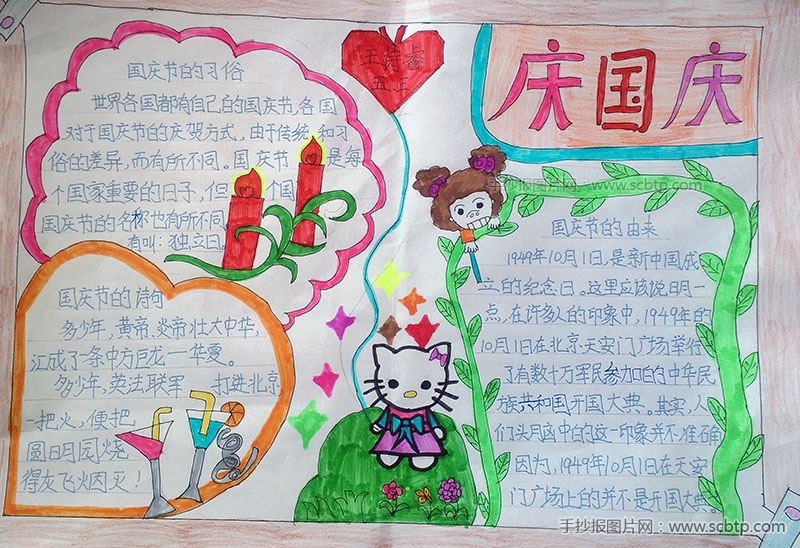 国庆节的习俗
世界各国都有自己的国庆节,各国
对于国庆节的庆贺方式,由于传统和习
俗的差异,而有所不同。国庆节 是每
个国家重要的日子,但 个国
国庆节的名称也有所不同
有叫:独立日,
国庆节的诗句
多少年,黄帝、炎帝壮大中华,
汇成了一条中方巨龙一华夏。
多少年,英法联军 打进北京
一把火,便把
圆明园烧
得灰飞烟灭!
王诗睿
五三
庆国庆
手抄报图片网:www.scbtp.com
国庆节的由来
1949年10月1日,是新中国成
立的纪念日。这里应该说明一
点,在许多人的印象中,1949年的
10月1日在北京天安门广场举行
了有数十万军民参加的中华民
族共和国开国大典。其实,人
们头脑中的这一印象并不准确
因为,1949年10月1日在天安
门广场上的并不是开国大典。
手抄报图片网:www.scbtp.com